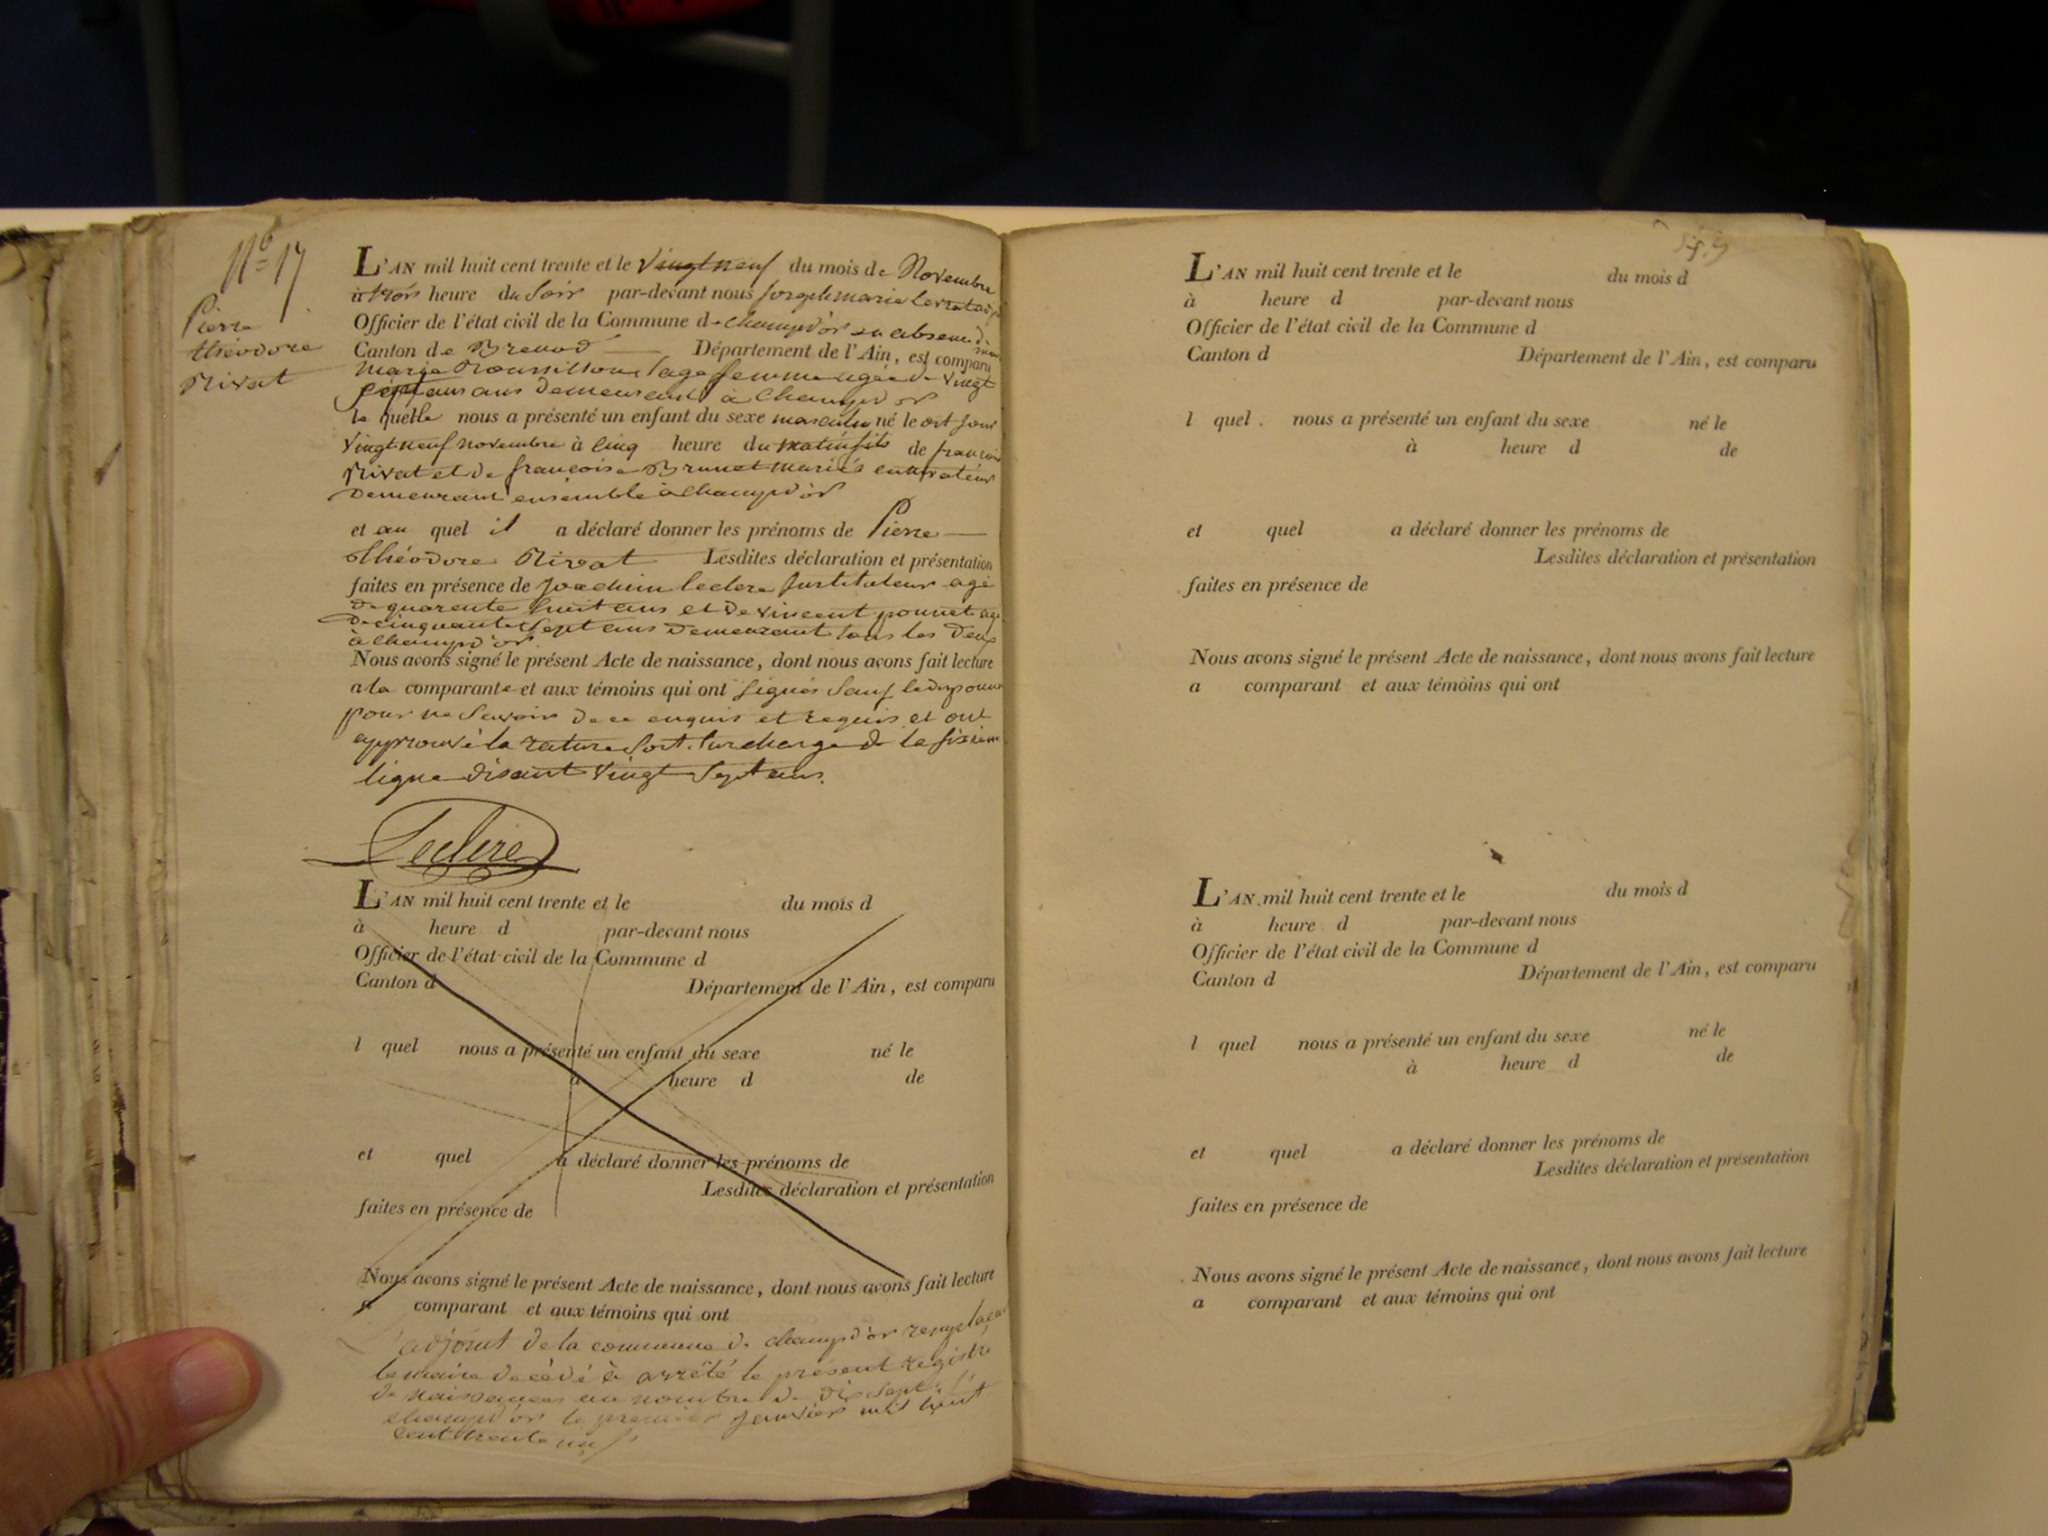 N° 17
Pierre
théodore
Rivat
L'AN mil huit cent trente et le Vingt neuf du mois de Novembre
à trois heure du soir par-devant nous joseph marie
Officier de l'état civil de la Commune de Champd'or en absence d
Canton de Brenod Département de l'Ain, est comparu
Marie Roussillon sage femme agée de vingt
sept ans ans demeurant à Champd'or
la quelle nous a présenté un enfant du sexe masculin né le dit jour
Vingt neuf novembre à cinq heure du matin fils de françois
Rivat et de françoise Brunet mariés cultivateurs
demeurant ensemble à Champd'or
et au quel il a déclaré donner les prénoms de Pierre
théodore Rivat Lesdites déclaration et présentation
faites en présence de Joachim leclere Instituteur agé
de quarente huit ans et de vincent ponnet agé
de cinquante sept ans demeurant tous les deux
à Champd'or
Nous avons signé le présent Acte de naissance, dont nous avons fait lecture
a la comparante et aux témoins qui ont signés sauf ledit ponnet
pour ne savoir de ce enquis et requis et ont
approuvé la rature surcharge de la sixieme
ligne disant vingt sept ans.
Leclere
L'AN mil huit cent trente et le du mois d
à heure d par-devant nous
Officier de l'état civil de la Commune d
Canton d Département de l'Ain, est comparu
l quel nous a présenté un enfant du sexe né le
à heure d de
et quel a déclaré donner les prénoms de
Lesdites déclaration et présentation
faites en présence de
Nous avons signé le présent Acte de naissance, dont nous avons fait lecture
a comparant et aux témoins qui ont
L'adjoint de la commune de champd'or remplaçant
le maire décédé à arrêté le présent registre
de naissances au nombre de dix sept
champd'or le premier janvier mil huit
cent trente un
L'AN mil huit cent trente et le du mois d
à heure d par-devant nous
Officier de l'état civil de la Commune d
Canton d Département de l'Ain, est comparu
l quel nous a présenté un enfant du sexe né le
à heure d de
et quel a déclaré donner les prénoms de
Lesdites déclaration et présentation
faites en présence de
Nous avons signé le présent Acte de naissance, dont nous avons fait lecture
a comparant et aux témoins qui ont
L'AN mil huit cent trente et le du mois d
à heure d par-devant nous
Officier de l'état civil de la Commune d
Canton d Département de l'Ain, est comparu
l quel nous a présenté un enfant du sexe né le
à heure d de
et quel a déclaré donner les prénoms de
Lesdites déclaration et présentation
faites en présence de
Nous avons signé le présent Acte de naissance, dont nous avons fait lecture
a comparant et aux témoins qui ont